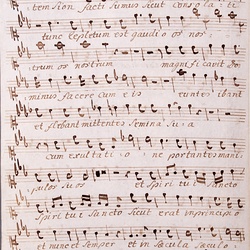 tem Sion facti sumus sicut consolati
tunc repletum est gaudio os nos
trum os nostrum magnificavit Do
minus facere cum eis euntes ibant
et flebant mittentes Semina Sua
cum exultatione portantes mani
pulos suos et Spiritui Sancto
Spiritui Sancto Sicut erat in principio
et nunc et Semper et in Sæcula Sæculo